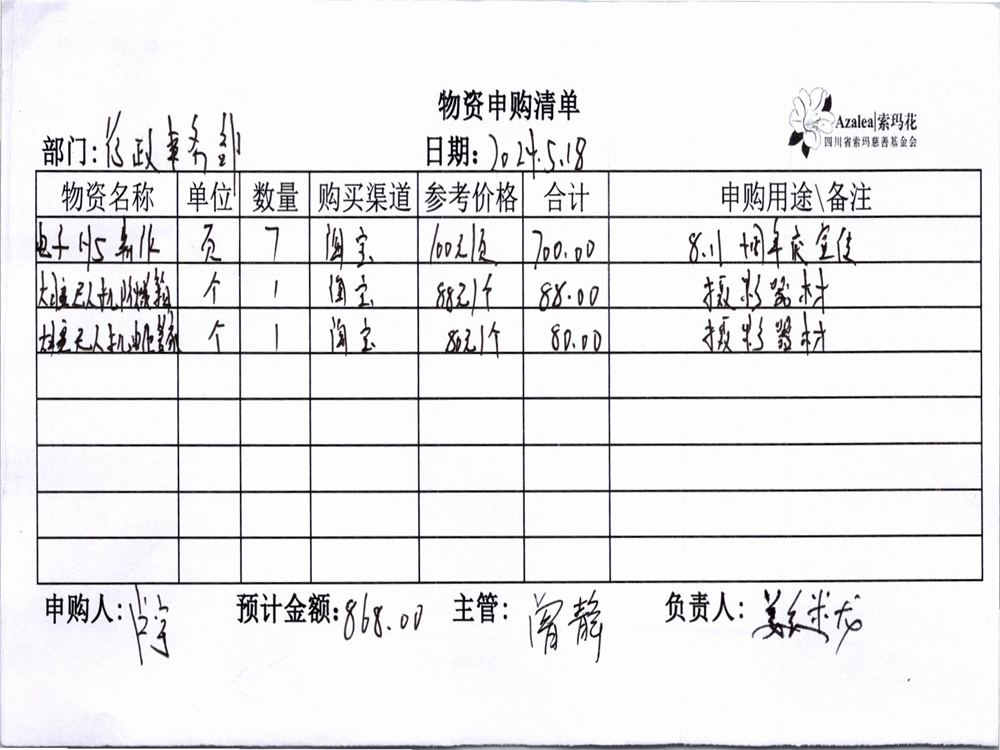 物资申购清单
Azalea|索玛花
四川省索玛慈善基金会
部门:行政事务部 日期:2024.5.18
物资名称 单位 数量 购买渠道 参考价格 合计 申购用途\备注
电子H5制作 页 7 淘宝 100元/页 700.00 8.11 周年庆宣传
大疆无人机防爆箱 个 1 淘宝 88元/个 88.00 摄影器材
大疆无人机电池管家 个 1 淘宝 80元/个 80.00 摄影器材
申购人: 预计金额:868.00 主管:曾静 负责人: